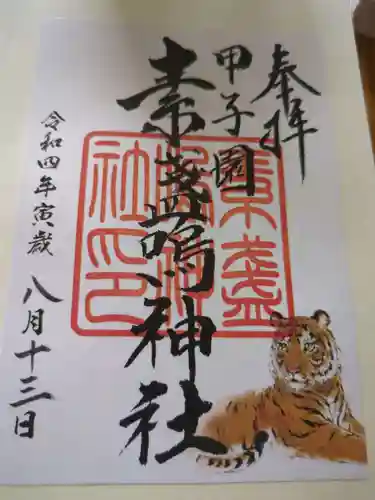 奉拝
甲子園
素盞嗚神社
令和四年寅歳 八月十三日